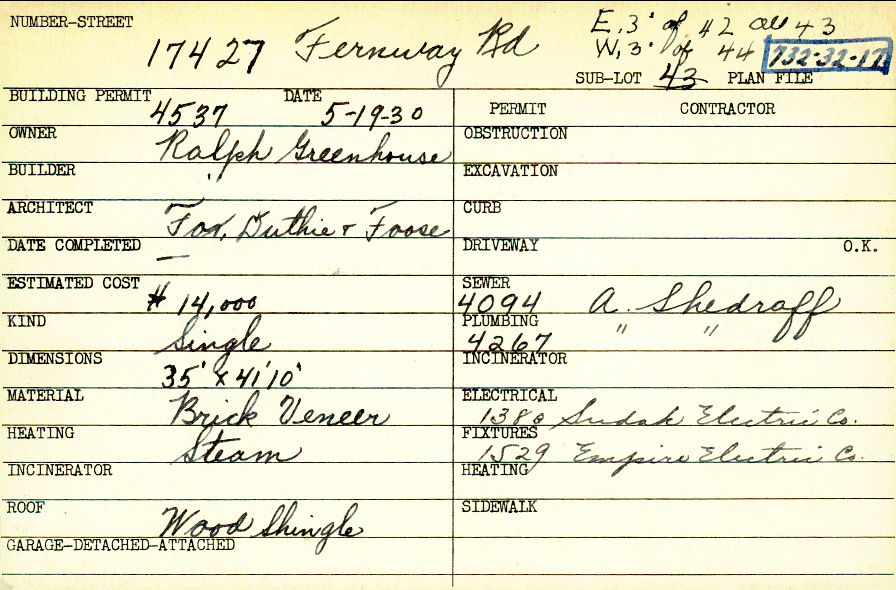 NUMBER-STREET 17427 Fernway Rd
E, 3' of 42 all 43
W, 3' of 44 732-32-17
SUB-LOT 43 PLAN FILE
BUILDING PERMIT 4537 DATE 5-19-30
OWNER Ralph Greenhouse
BUILDER "
ARCHITECT Fox, Duthie & Foose
DATE COMPLETED —
ESTIMATED COST $ 14,000
KIND Single
DIMENSIONS 35' x 41'10"
MATERIAL Brick Veneer
HEATING Steam
INCINERATOR
ROOF Wood Shingle
GARAGE-DETACHED-ATTACHED
PERMIT CONTRACTOR
OBSTRUCTION
EXCAVATION
CURB
DRIVEWAY O.K.
SEWER 4094 A. Shedroff
PLUMBING 4267 " "
INCINERATOR
ELECTRICAL 1380 Electric Co.
FIXTURES 1529 Empire Electric Co.
HEATING
SIDEWALK